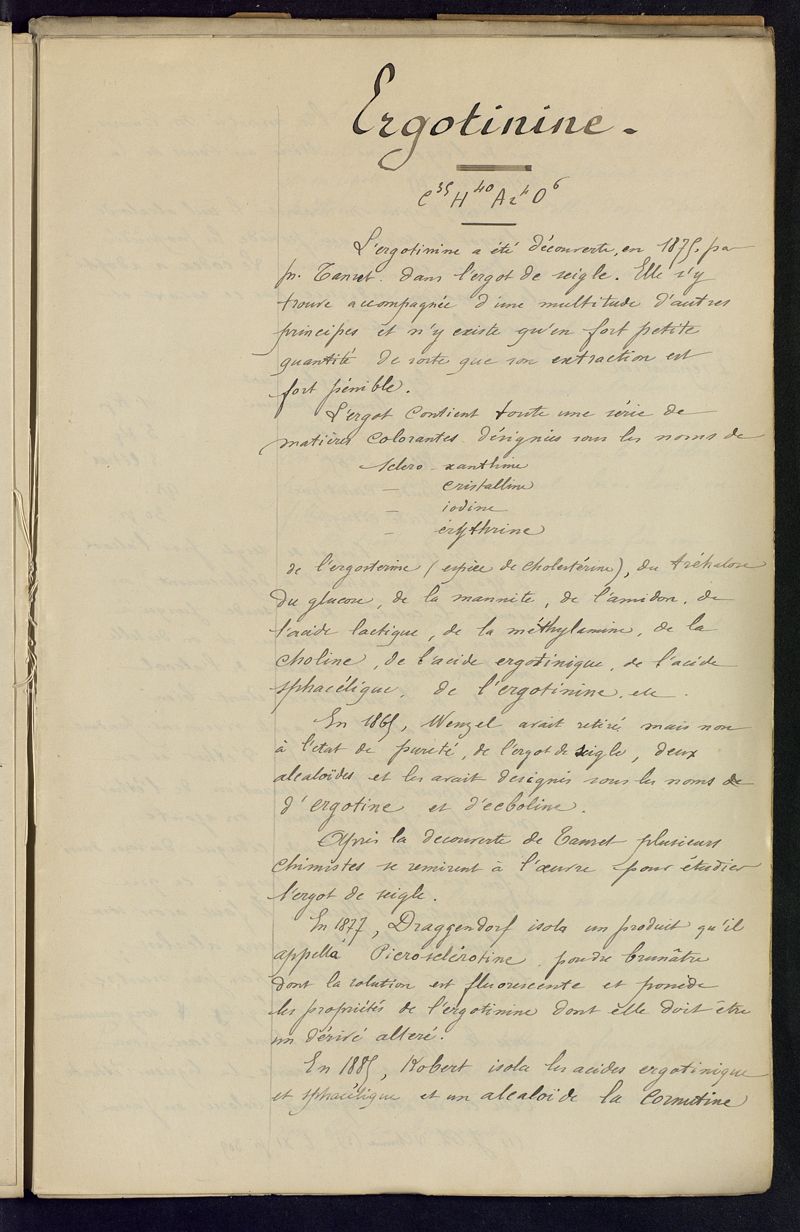 Ergotinine.
C³⁵ H⁴⁰ Az⁴ O⁶
L'ergotinine a été découverte, en 1875, par
Mr. Tanret dans l'ergot de seigle. Elle s'y
trouve accompagnée d'une multitude d'autres
principes et n'y existe qu'en fort petite
quantité de sorte que son extraction est
fort pénible.
L'ergot contient toute une série de
matières colorantes désignées sous les noms de
sclero - xanthine
– cristalline
– iodine
– érythrine
de l'ergosterine (espèce de cholestérine), du tréhalose
du glucose, de la mannite, de l'amidon, de
l'acide lactique, de la méthylamine, de la
choline, de l'acide ergotinique, de l'acide
sphacélique, de l'ergotinine, etc.
En 1865, Wenzel avait retiré mais non
à l'état de pureté, de l'ergot de seigle, deux
alcaloïdes et les avait désignés sous les noms de
d'ergotine et d'ecboline.
Après la decouverte de Tanret plusieurs
chimistes se remirent à l'œuvre pour étudier
l'ergot de seigle.
En 1877, Draggendorf isola un produit qu'il
appella Picrosclérotine, poudre brunâtre
dont la solution est fluorescente et possède
les propriétés de l'ergotinine dont elle doit être
un dérivé altéré.
En 1885, Kobert isola les acides ergotinique
et sphacélique et un alcaloïde la Cornutine